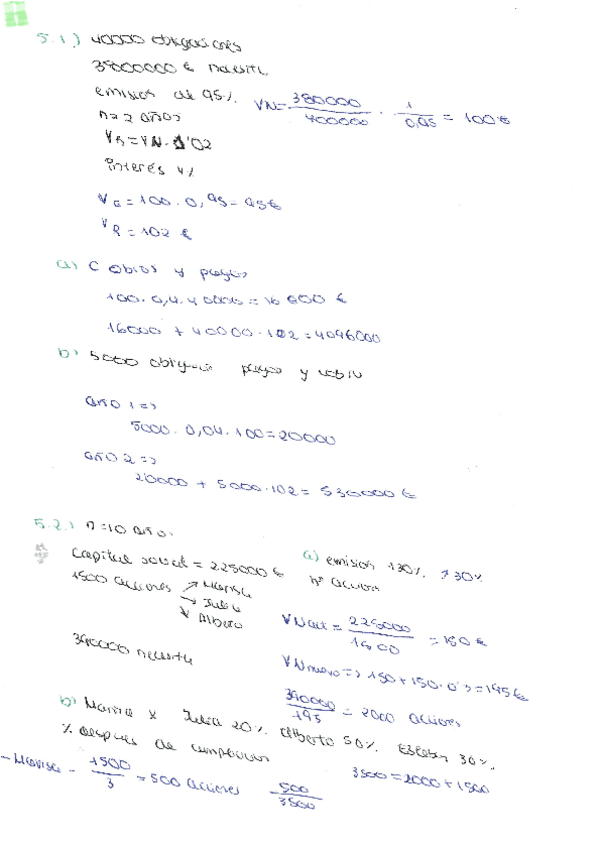 5.1) 40000 obligaciones
38000000 € necesita
emisión de 95%
VN = 380000 / 400000 · 1 / 0,95 = 100 €
n = 2 años
VR = VN · 1'02
interés 4%
VE = 100 · 0,95 = 95€
VR = 102 €
a) Cobros y pagos
100 · 0,4 · 40000 = 16000 €
16000 + 40000 · 102 = 4096000
b) 5000 pagos y
año 1 =>
5000 · 0,04 · 100 = 20000
año 2 =>
20000 + 5000 · 102 = 530000 €
5.2) n = 10 años
Capital social = 225000 €
a) emisión 130%. 30%
1500 acciones → Marisa
→ Julia
Alberto
nº
VN = 225000 / 1500 = 150 €
390000 necesita
VNnuevo => 150 + 150 · 0'3 = 195€
390000 / 195 = 2000 acciones
b) Marisa x Julia 20%. Alberto 50%. Esteban 30%.
% después de
3500 = 2000 + 1500
- Marisa - 1500 / 3 = 500 acciones 500 / 3500